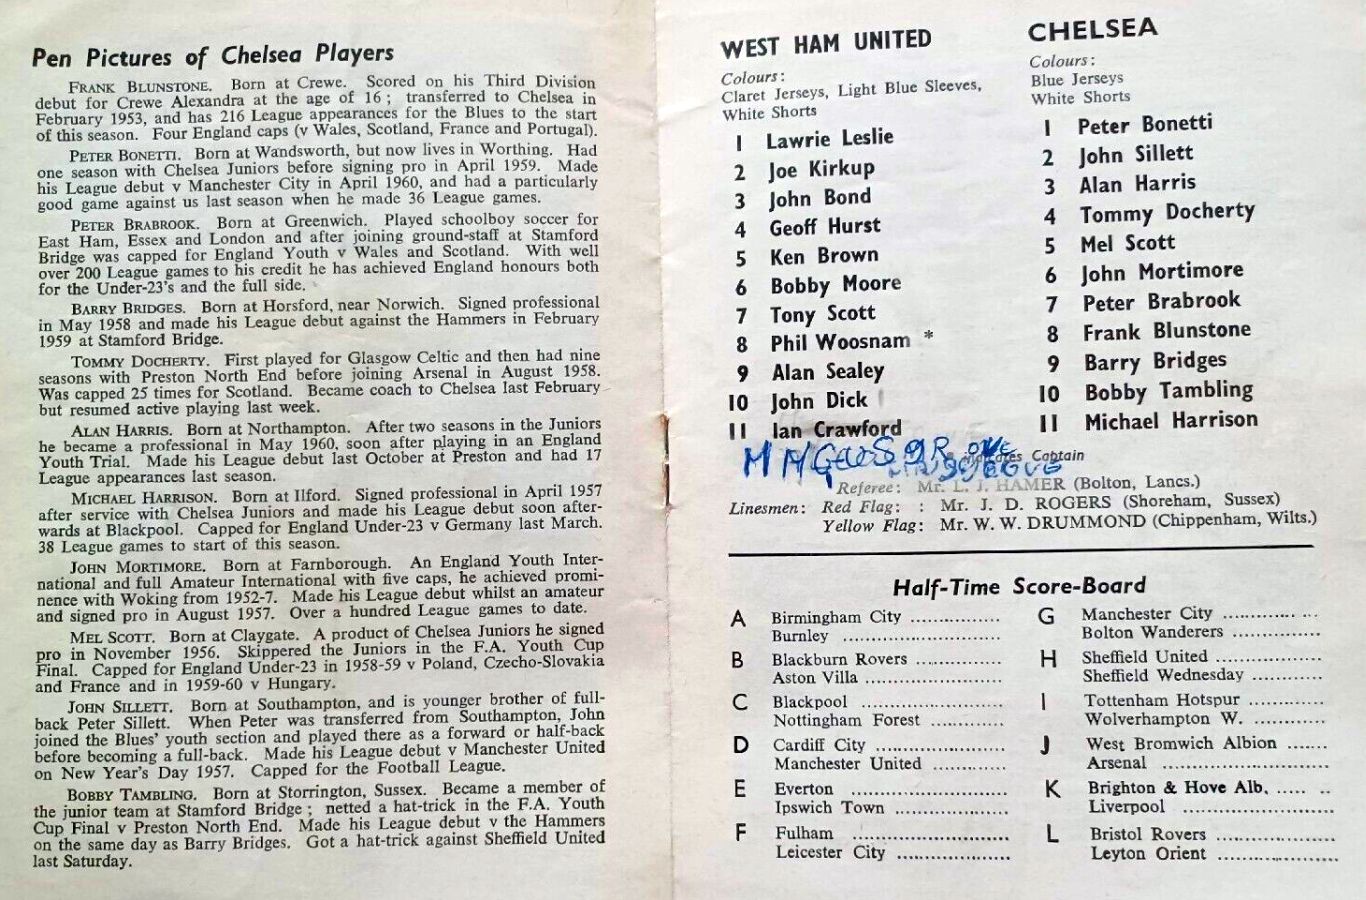 Pen Pictures of Chelsea Players
FRANK BLUNSTONE. Born at Crewe. Scored on his Third Division
debut for Crewe Alexandra at the age of 16 ; transferred to Chelsea in
February 1953, and has 216 League appearances for the Blues to the start
of this season. Four England caps (v Wales, Scotland, France and Portugal).
PETER BONETTI. Born at Wandsworth, but now lives in Worthing. Had
one season with Chelsea Juniors before signing pro in April 1959. Made
his League debut v Manchester City in April 1960, and had a particularly
good game against us last season when he made 36 League games.
PETER BRABROOK. Born at Greenwich. Played schoolboy soccer for
East Ham, Essex and London and after joining ground-staff at Stamford
Bridge was capped for England Youth v Wales and Scotland. With well
over 200 League games to his credit he has achieved England honours both
for the Under-23's and the full side.
BARRY BRIDGES. Born at Horsford, near Norwich. Signed professional
in May 1958 and made his League debut against the Hammers in February
1959 at Stamford Bridge.
TOMMY DOCHERTY. First played for Glasgow Celtic and then had nine
seasons with Preston North End before joining Arsenal in August 1958.
Was capped 25 times for Scotland. Became coach to Chelsea last February
but resumed active playing last week.
ALAN HARRIS. Born at Northampton. After two seasons in the Juniors
he became a professional in May 1960, soon after playing in an England
Youth Trial. Made his League debut last October at Preston and had 17
League appearances last season.
MICHAEL HARRISON. Born at Ilford. Signed professional in April 1957
after service with Chelsea Juniors and made his League debut soon after-
wards at Blackpool. Capped for England Under-23 v Germany last March.
38 League games to start of this season.
JOHN MORTIMORE. Born at Farnborough. An England Youth Inter-
national and full Amateur International with five caps, he achieved promi-
nence with Woking from 1952-7. Made his League debut whilst an amateur
and signed pro in August 1957. Over a hundred League games to date.
MEL SCOTT. Born at Claygate. A product of Chelsea Juniors he signed
pro in November 1956. Skippered the Juniors in the F.A. Youth Cup
Final. Capped for England Under-23 in 1958-59 v Poland, Czecho-Slovakia
and France and in 1959-60 v Hungary.
JOHN SILLETT. Born at Southampton, and is younger brother of full-
back Peter Sillett. When Peter was transferred from Southampton, John
joined the Blues' youth section and played there as a forward or half-back
before becoming a full-back. Made his League debut v Manchester United
on New Year's Day 1957. Capped for the Football League.
BOBBY TAMBLING. Born at Storrington, Sussex. Became a member of
the junior team at Stamford Bridge ; netted a hat-trick in the F.A. Youth
Cup Final v Preston North End. Made his League debut v the Hammers
on the same day as Barry Bridges. Got a hat-trick against Sheffield United
last Saturday.
WEST HAM UNITED
Colours:
Claret Jerseys, Light Blue Sleeves,
White Shorts
1 Lawrie Leslie
2 Joe Kirkup
3 John Bond
4 Geoff Hurst
5 Ken Brown
6 Bobby Moore
7 Tony Scott
8 Phil Woosnam *
9 Alan Sealey
10 John Dick
11 Ian Crawford
CHELSEA
Colours:
Blue Jerseys
White Shorts
1 Peter Bonetti
2 John Sillett
3 Alan Harris
4 Tommy Docherty
5 Mel Scott
6 John Mortimore
7 Peter Brabrook
8 Frank Blunstone
9 Barry Bridges
10 Bobby Tambling
11 Michael Harrison
indicates Captain
Referee: Mr. L. J. HAMER (Bolton, Lancs.)
Linesmen: Red Flag: : Mr. J. D. ROGERS (Shoreham, Sussex)
Yellow Flag: Mr. W. W. DRUMMOND (Chippenham, Wilts.)
Half-Time Score-Board
A Birmingham City ................
Burnley ............................
B Blackburn Rovers ...............
Aston Villa ........................
C Blackpool .........................
Nottingham Forest .............
D Cardiff City .......................
Manchester United .............
E Everton ............................
Ipswich Town ....................
F Fulham ............................
Leicester City ....................
G Manchester City ................
Bolton Wanderers ...............
H Sheffield United ...................
Sheffield Wednesday ............
I Tottenham Hotspur .............
Wolverhampton W. .............
J West Bromwich Albion .......
Arsenal .............................
K Brighton & Hove Alb. ..... ..
Liverpool ...........................
L Bristol Rovers .....................
Leyton Orient .....................